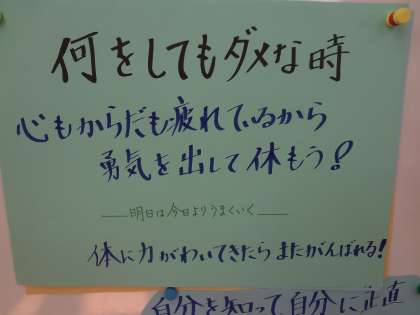 何をしてもダメな時
心もからだも疲れているから
勇気を出して休もう!
明日は今日よりうまくいく
体に力がわいてきたらまたがんばれる!
自分を知って自分に正直